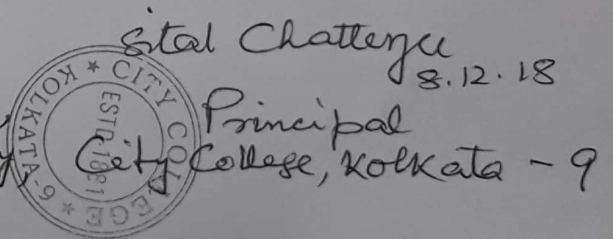 Sital Chatterjee
8.12.18
Principal
City College, Kolkata - 9
★ CITY COLLEGE ★ KOLKATA-9
ESTD. 1881